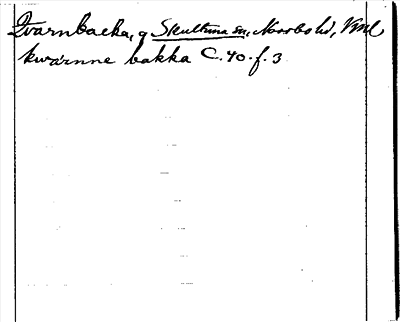 Qvarnbacka, g Skultuna sn, Norrbo hd, Vml
kwarnne bakka C. 40. f. 3